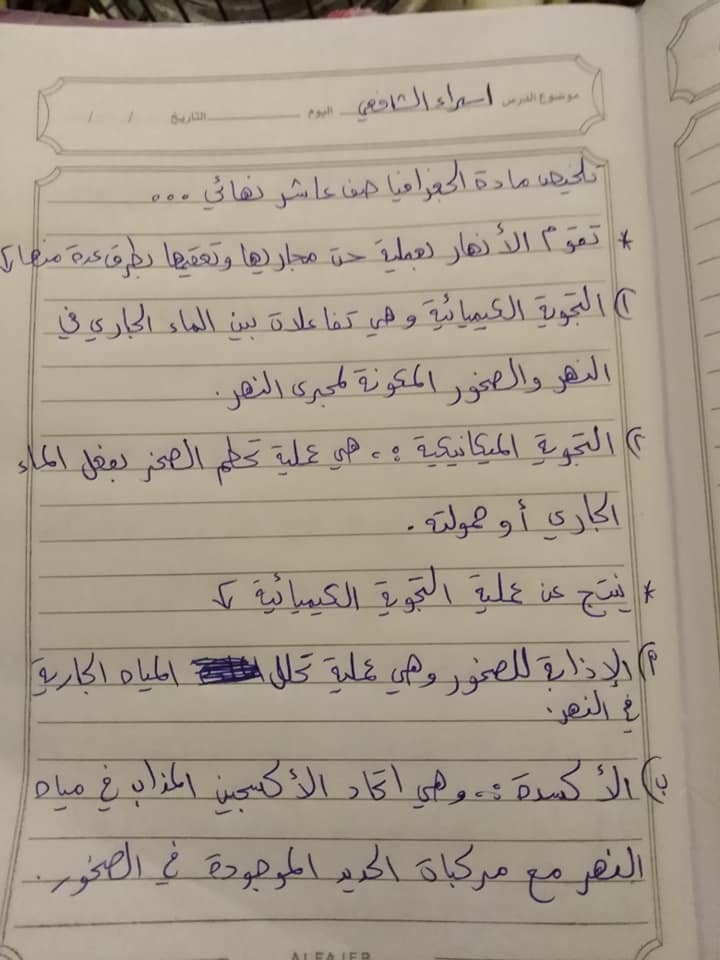 موضوع الدرس اسراء الشافعي اليوم التاريخ / /
تلخيص مادة الجغرافيا صف عاشر نهائي ...
* تقوم الأنهار بعملية حت مجاريها وتعميقها بطرق عدة منها
١) التجوية الكيميائية وهي تفاعلات بين الماء الجاري في
النهر والصخور المكونة لمجرى النهر.
٢) التجوية الميكانيكية :. هي عملية تحطم الصخر بفعل الماء
الجاري أو حمولته .
* ينتج عن عملية التجوية الكيميائية
أ) الإذابة للصخور وهي عملية تحلل المياه الجارية
في النهر.
ب) الأكسدة :. وهي اتحاد الأكسجين المذاب في مياه
النهر مع مركباة الحديد الموجودة في الصخور.
ALFAJER